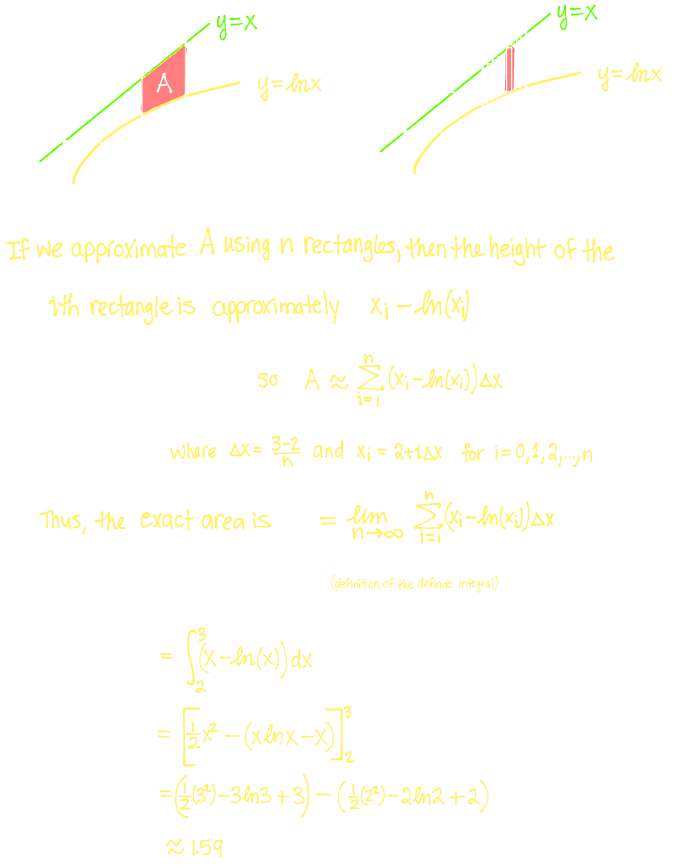 y=x
y=x
A
y=lnx
y=lnx
If we approximate A using n rectangles, then the height of the
ith rectangle is approximately xᵢ − ln(xᵢ)
so A ≈ ∑ᵢ₌₁ⁿ (xᵢ−ln(xᵢ))Δx
where Δx = (3−2)/n and xᵢ = 2+iΔx for i=0,1,2,...,n
Thus, the exact area is = lim n→∞ ∑ᵢ₌₁ⁿ (xᵢ−ln(xᵢ))Δx
(definition of the definite integral)
= ∫₂³ (x−ln(x))dx
= [½x² − (xlnx−x)]₂³
= (½(3²)−3ln3+3) − (½(2²)−2ln2+2)
≈ 1.59